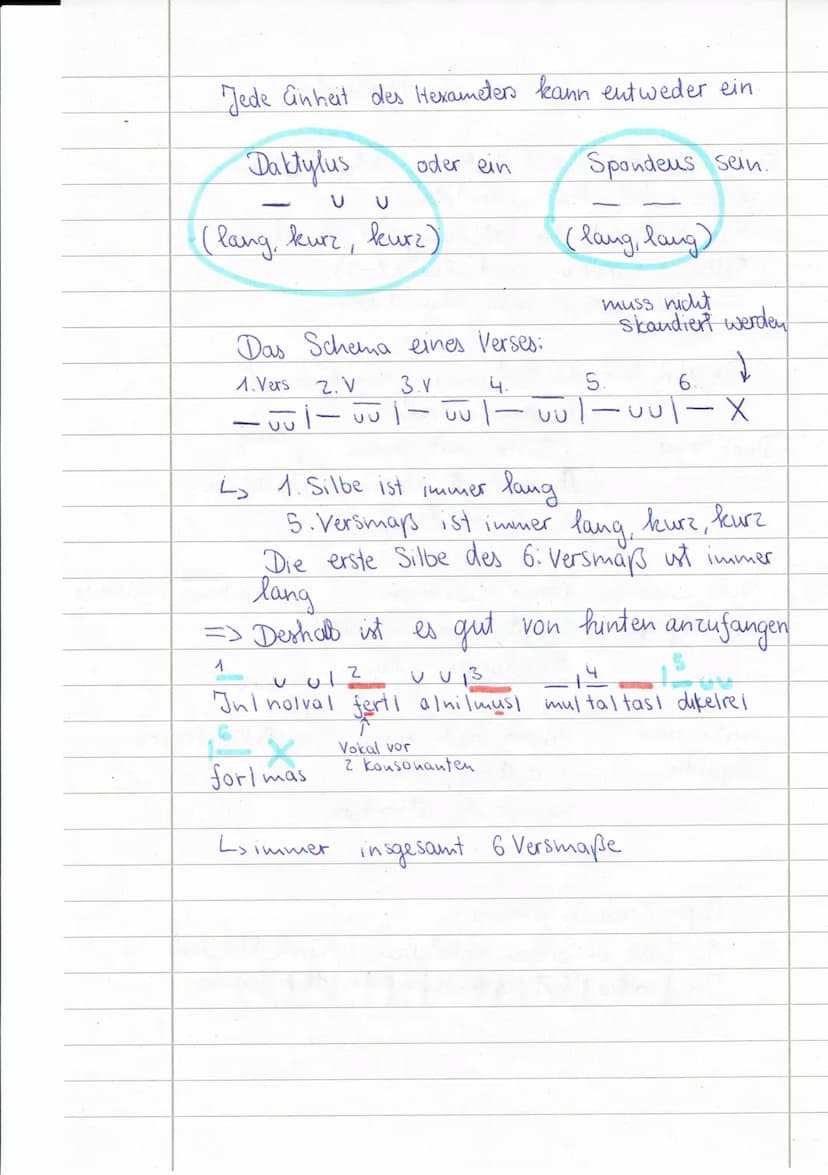 Jede Einheit des Hexameters kann entweder ein
Daktylus oder ein Spondeus sein.
— ∪ ∪ — —
(lang, kurz, kurz) (lang, lang)
muss nicht
skandiert werden
Das Schema eines Verses:
1. Vers 2. V 3. V 4. 5. 6. ↓
— ∪∪ | — ∪∪ | — ∪∪ | — ∪∪ | — ∪∪ | — X
↳ 1. Silbe ist immer lang
5. Versmaß ist immer lang, kurz, kurz
Die erste Silbe des 6. Versmaß ist immer
lang
=> Deshalb ist es gut von hinten anzufangen
1 ∪ ∪ | 2 ∪ ∪ | 3 — | 4 — | 5 ∪∪
In| no|va| fert| a|ni|mus| mu| ta|tas| di|ce|re|
| 6 X
for| mas
Vokal vor
2 Konsonanten
↳ immer insgesamt 6 Versmaße